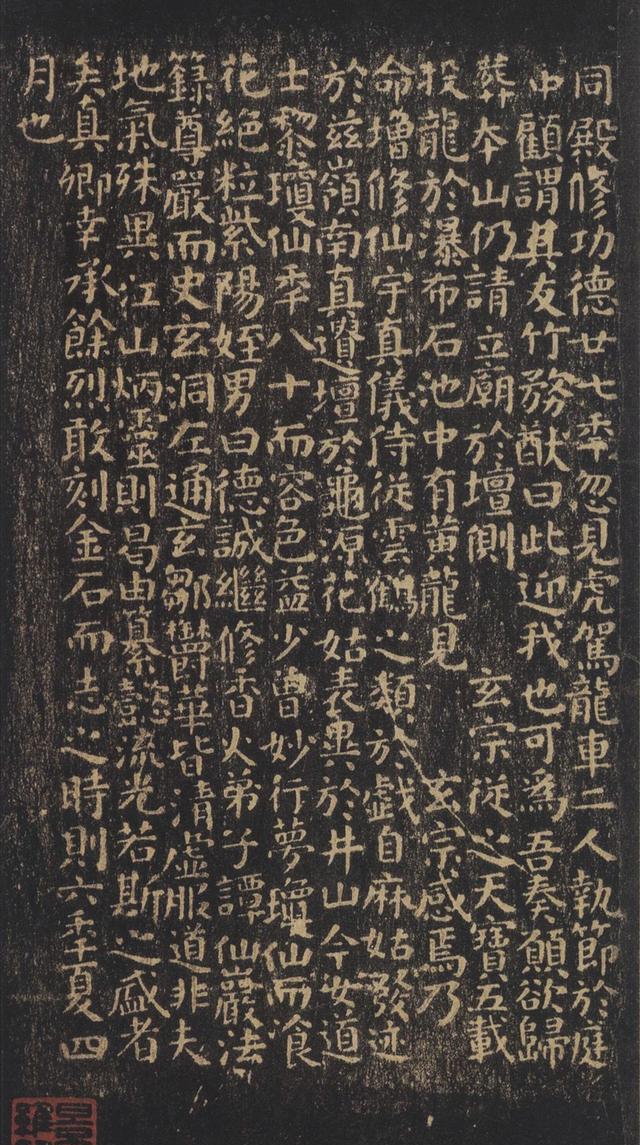 同殿修功德廿七秊忽見虎駕龍車二人執節於庭
中顧謂其友竹務猷曰此迎我也可為吾奏願欲歸
葬本山仍請立廟於壇側　玄宗從之天寶五載
投龍於瀑布石池中有黃龍見　玄宗感焉乃
命增修仙宇真儀侍從雲鶴之類於戲自麻姑發迹
於茲嶺南真遺壇於龜源花姑表異於井山今女道
士黎瓊仙秊八十而容色益少曾妙行夢瓊仙而飡
花絕粒紫陽姪男曰德誠繼修香火弟子譚仙巖法
籙尊嚴而史玄洞左通玄鄒鬱華皆清虛服道非夫
地氣殊異江山炳靈則曷由纂懿流光若斯之盛者
矣真卿幸承餘烈敢刻金石而志之時則六秊夏四
月也